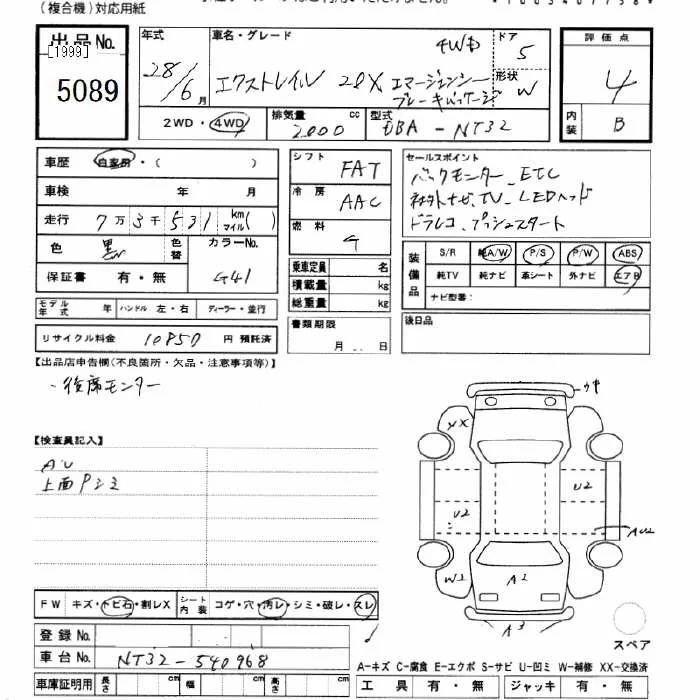 (複合機)対応用紙
出品No.
[1999]
5089
年式
28/6月
車名・グレード
エクストレイル 20X エマージェンシー
ブレーキパッケージ
4WD
ドア
5
形状
W
評価点
4
内装
B
2WD・4WD
排気量
2000 cc
型式
DBA-NT32
車歴 自家用・( )
車検 年 月
走行 7万3千531 km マイル( )
色 黒
色替
カラーNo.
G41
保証書 有・無
モデル年式 年 ハンドル 左・右 ディーラー・並行
リサイクル料金 10850 円 預託済
シフト FAT
冷房 AAC
燃料 G
乗車定員 名
積載量 kg
総重量 kg
書類期限
月 日
セールスポイント
バックモニター、ETC
社外ナビ、TV、LEDヘッド
ドラレコ、プッシュスタート
装備品
S/R 純A/W P/S P/W ABS
純TV 純ナビ 革シート 外ナビ エアB
ナビ型番:
後日品
【出品店申告欄(不良箇所・欠品・注意事項等)】
・後席モニター
【検査員記入】
AU
上面Pシミ
FW キズ・トビ石・割レX
シート内装 コゲ・穴・汚レ・シミ・破レ・スレ
登録No.
車台No. NT32-540968
車庫証明用 長さ cm 幅 cm 高さ cm
ウキ
YX
U2
U2
AU2
W2
A2
A3
スペア
A-キズ C-腐食 E-エクボ S-サビ U-凹ミ W-補修 XX-交換済
工具 有・無 ジャッキ 有・無